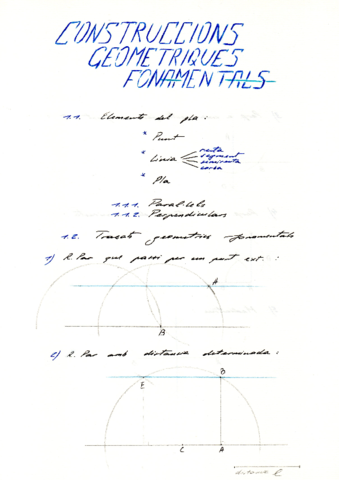 CONSTRUCCIONS
GEOMETRIQUES
FONAMENTALS
1.1. Elements del pla:
* Punt
* Linia recta
segment
semirecta
corba
* Pla
1.1.1. Paral·lels
1.1.2. Perpendiculars
1.2. Traçats geometrics fonamentals
1) R. Par que passi per un punt ext. :
A
B
2) R. Par amb distancia determinada :
E D
C A
distancia R